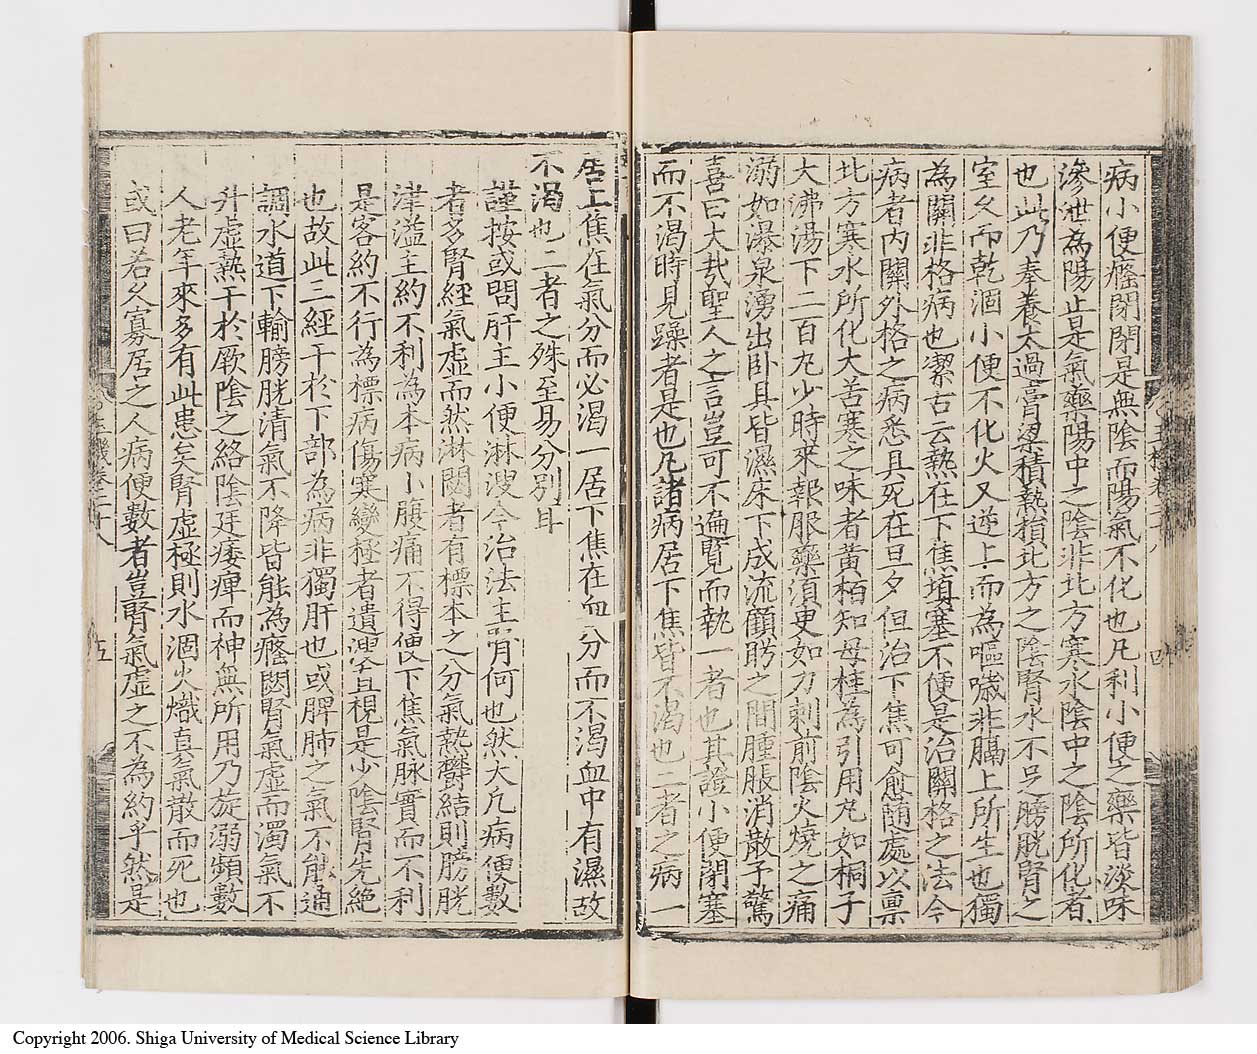 病小便癃閉閉是無陰而陽氣不化也凡利小便之藥皆淡味
滲泄為陽止是氣藥陽中之陰非北方寒水陰中之陰所化者
也此乃奉養太過膏粱積熱損北方之陰腎水不足膀胱腎之
室久而乾涸小便不化火又逆上而為嘔噦非膈上所生也獨
為關非格病也潔古云熱在下焦填塞不便是治關格之法今
病者內關外格之病悉具死在旦夕但治下焦可愈隨處以稟
北方寒水所化大苦寒之味者黃栢知母桂為引用丸如桐子
大沸湯下二百丸少時來報服藥須臾如刀刺前陰火燒之痛
溺如瀑泉湧出臥具皆濕床下成流顧盻之間腫脹消散予驚
喜曰大哉聖人之言豈可不遍覽而執一者也其證小便閉塞
而不渴時見躁者是也凡諸病居下焦皆不渴也二者之病一
居上焦在氣分而必渴一居下焦在血分而不渴血中有濕故
不渴也二者之殊至易分別耳
謹按或問肝主小便淋溲今治法主腎何也然大凡病便數
者多腎經氣虛而然淋閟者有標本之分氣熱鬱結則膀胱
津滥主約不利為本病小腹痛不得便下焦氣脉實而不利
是客約不行為標病傷寒變極者遺溲直視是少陰腎先絕
也故此二經干於下部為病非獨肝也或脾肺之氣不能通
調水道下輸膀胱清氣不降皆能為癃閟腎氣虛而濁氣不
升虛熱干於厥陰之絡陰廷痿痺而神無所用乃旋溺頻數
人老年來多有此患矣腎虛極則水涸火熾真氣散而死也
或曰若久寡居之人病便數者豈腎氣虛之不為約乎然是
五
Copyright 2006. Shiga University of Medical Science Library